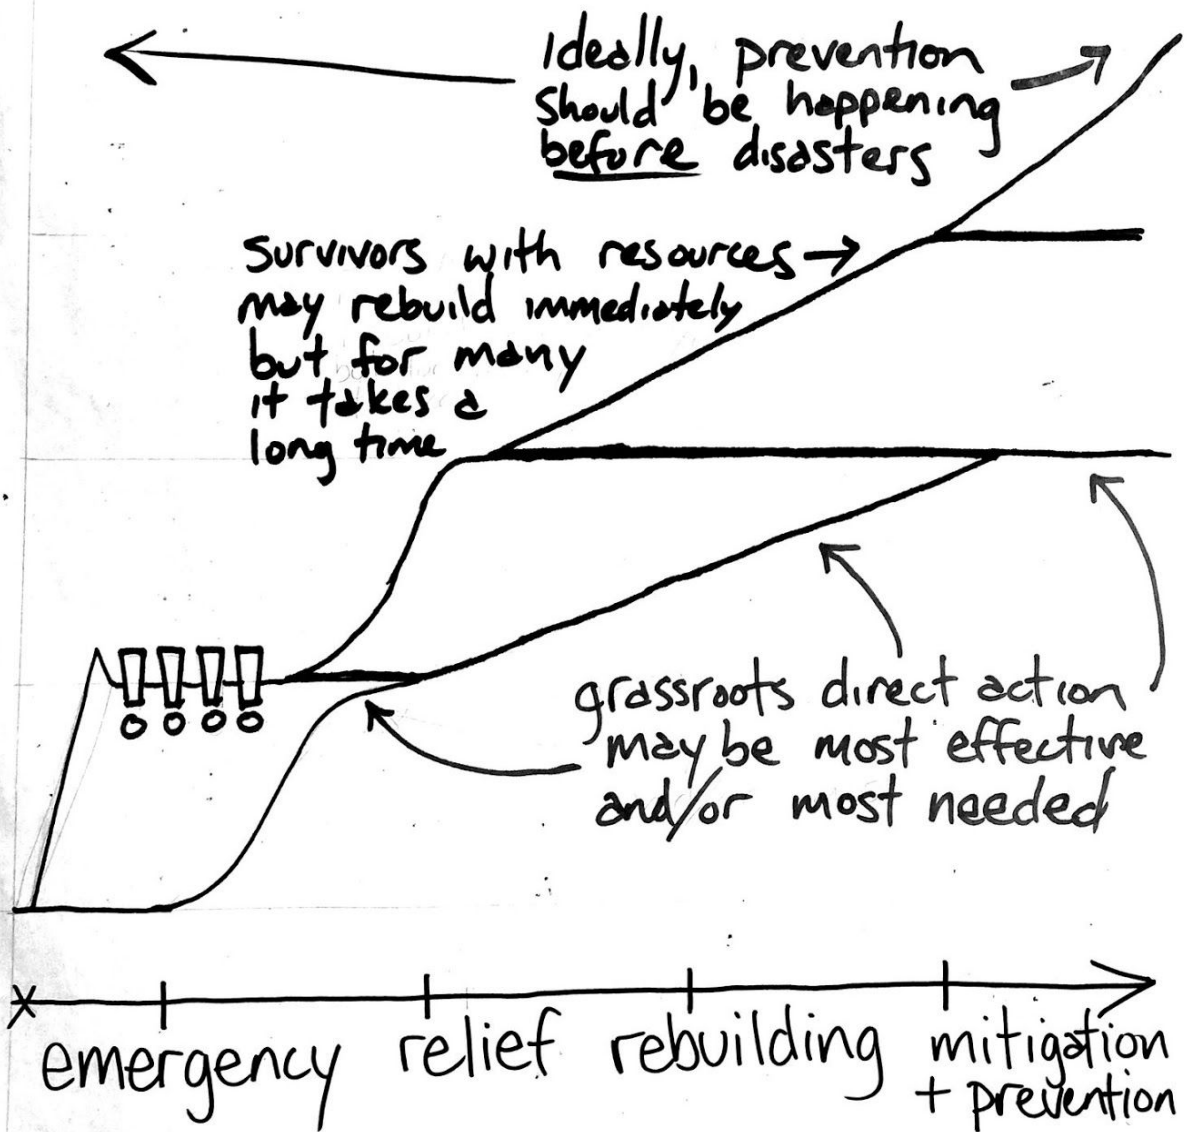 Ideally, prevention
should be happening
before disasters
survivors with resources
may rebuild immediately
but for many
it takes a
long time
!!!!
grassroots direct action
may be most effective
and/or most needed
emergency relief rebuilding mitigation
+ prevention